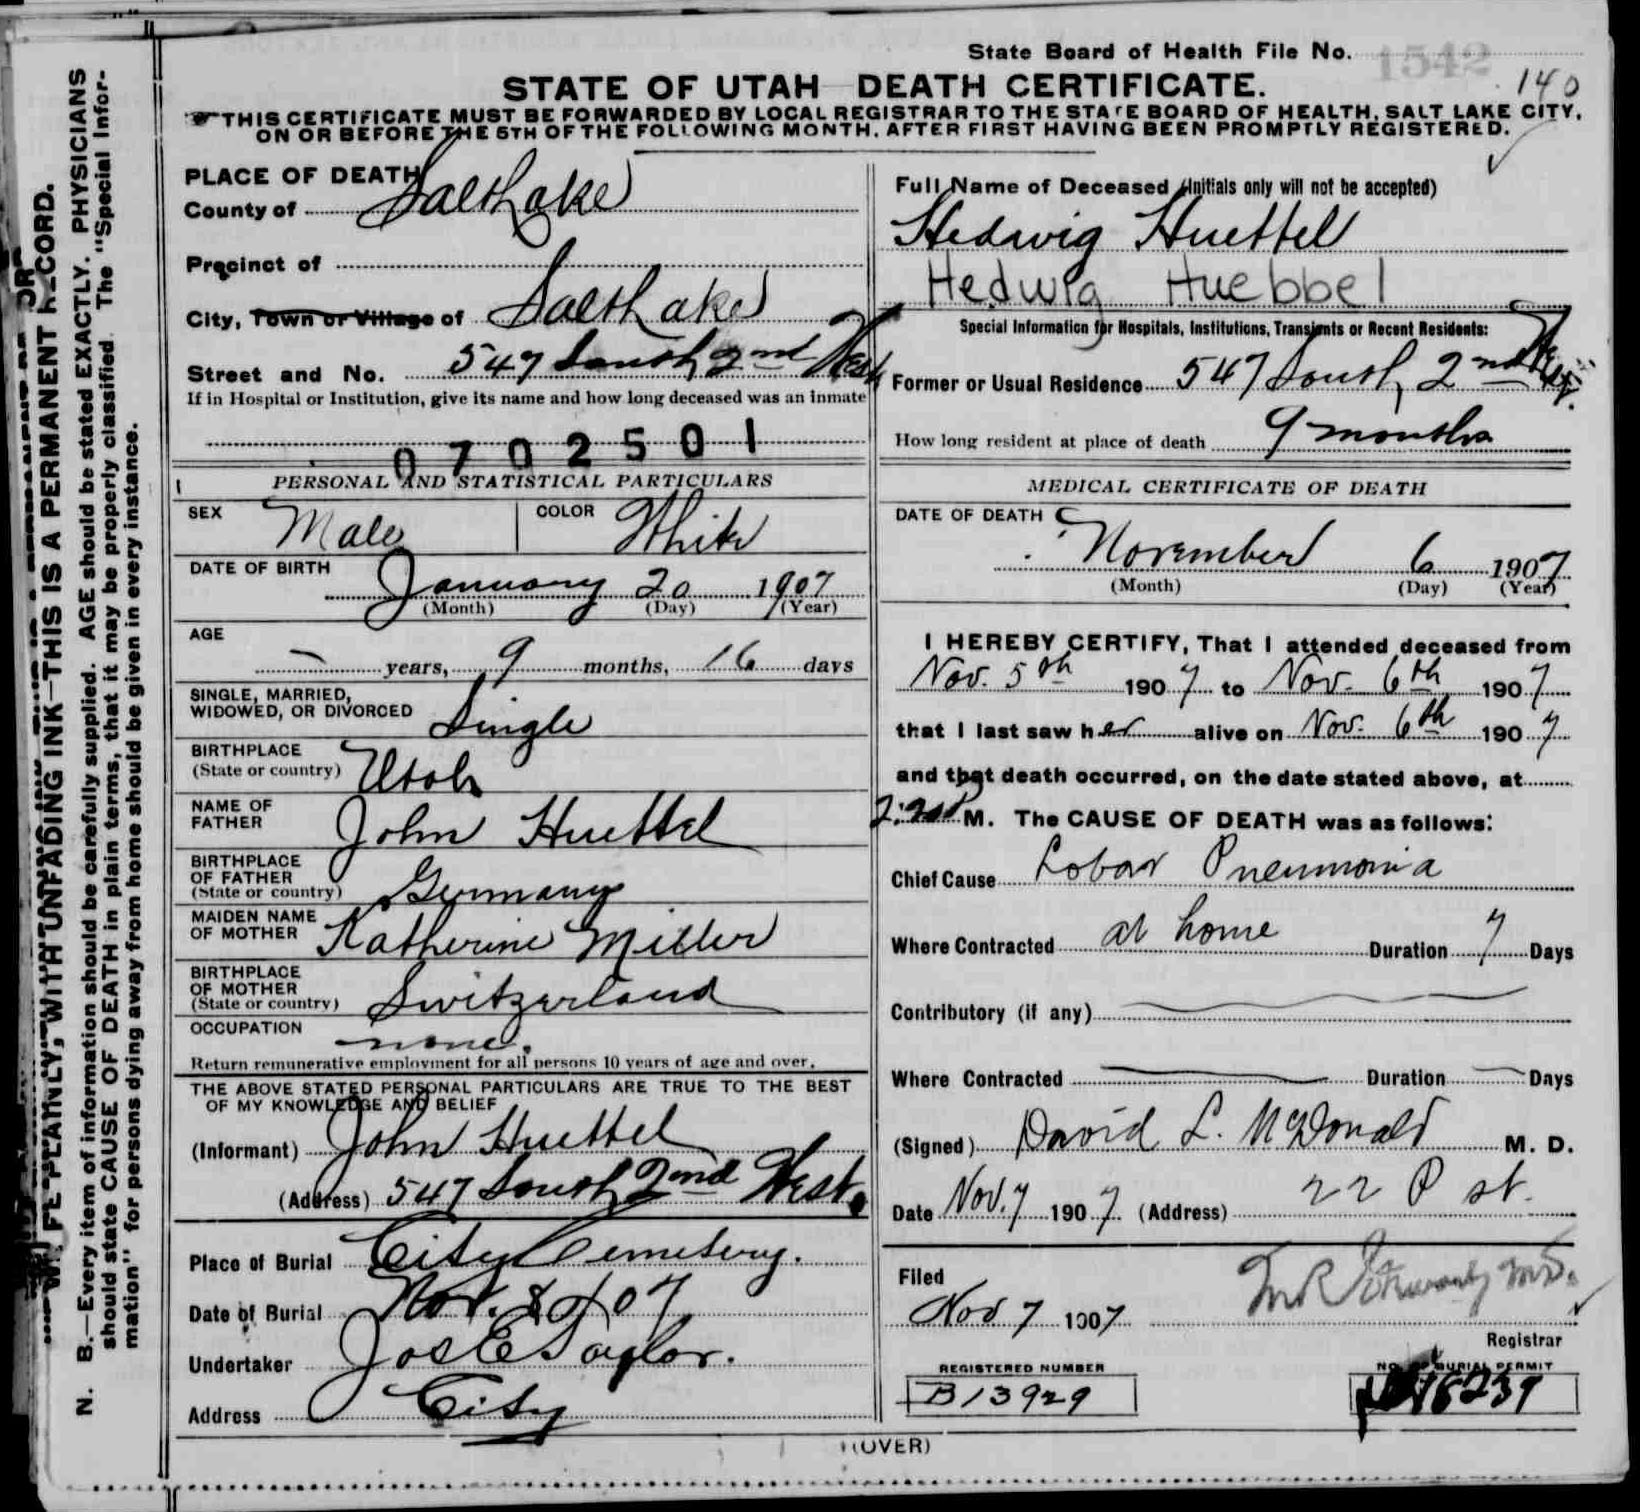 State Board of Health File No. 1542
140
STATE OF UTAH DEATH CERTIFICATE.
THIS CERTIFICATE MUST BE FORWARDED BY LOCAL REGISTRAR TO THE STATE BOARD OF HEALTH, SALT LAKE CITY,
ON OR BEFORE THE 5TH OF THE FOLLOWING MONTH, AFTER FIRST HAVING BEEN PROMPTLY REGISTERED.
PLAINLY, WITH UNFADING INK—THIS IS A PERMANENT RECORD.
N. B.—Every item of information should be carefully supplied. AGE should be stated EXACTLY. PHYSICIANS
should state CAUSE OF DEATH in plain terms, that it may be properly classified. The "Special Infor-
mation" for persons dying away from home should be given in every instance.
PLACE OF DEATH
County of Salt Lake
Precinct of
City, Town or Village of Salt Lake
Street and No. 547 South 2nd West
If in Hospital or Institution, give its name and how long deceased was an inmate
0702501
PERSONAL AND STATISTICAL PARTICULARS
SEX Male COLOR White
DATE OF BIRTH
January 20 1907
(Month) (Day) (Year)
AGE
— years, 9 months, 16 days
SINGLE, MARRIED,
WIDOWED, OR DIVORCED Single
BIRTHPLACE
(State or country) Utah
NAME OF
FATHER John Huettel
BIRTHPLACE
OF FATHER
(State or country) Germany
MAIDEN NAME
OF MOTHER Katherine Miller
BIRTHPLACE
OF MOTHER
(State or country) Switzerland
OCCUPATION none.
Return remunerative employment for all persons 10 years of age and over.
THE ABOVE STATED PERSONAL PARTICULARS ARE TRUE TO THE BEST
OF MY KNOWLEDGE AND BELIEF
(Informant) John Huettel
(Address) 547 South 2nd West.
Place of Burial City Cemetery.
Date of Burial Nov. 8 1907
Undertaker Jos E Taylor.
Address City
Full Name of Deceased (Initials only will not be accepted)
Hedwig Huettel
Hedwig Huebbel
Special Information for Hospitals, Institutions, Transients or Recent Residents:
Former or Usual Residence 547 South 2nd West.
How long resident at place of death 9 months
MEDICAL CERTIFICATE OF DEATH
DATE OF DEATH
November 6 1907
(Month) (Day) (Year)
I HEREBY CERTIFY, That I attended deceased from
Nov. 5th 1907 to Nov. 6th 1907
that I last saw her alive on Nov. 6th 1907
and that death occurred, on the date stated above, at
M. The CAUSE OF DEATH was as follows:
Chief Cause Lobar Pneumonia
Where Contracted at home Duration 7 Days
Contributory (if any)
Where Contracted Duration Days
(Signed) David L. McDonald M. D.
Date Nov. 7 1907. (Address) 22 P st.
Filed
Nov 7 1907
Registrar
REGISTERED NUMBER
B13929
NO. OF BURIAL PERMIT
(OVER)